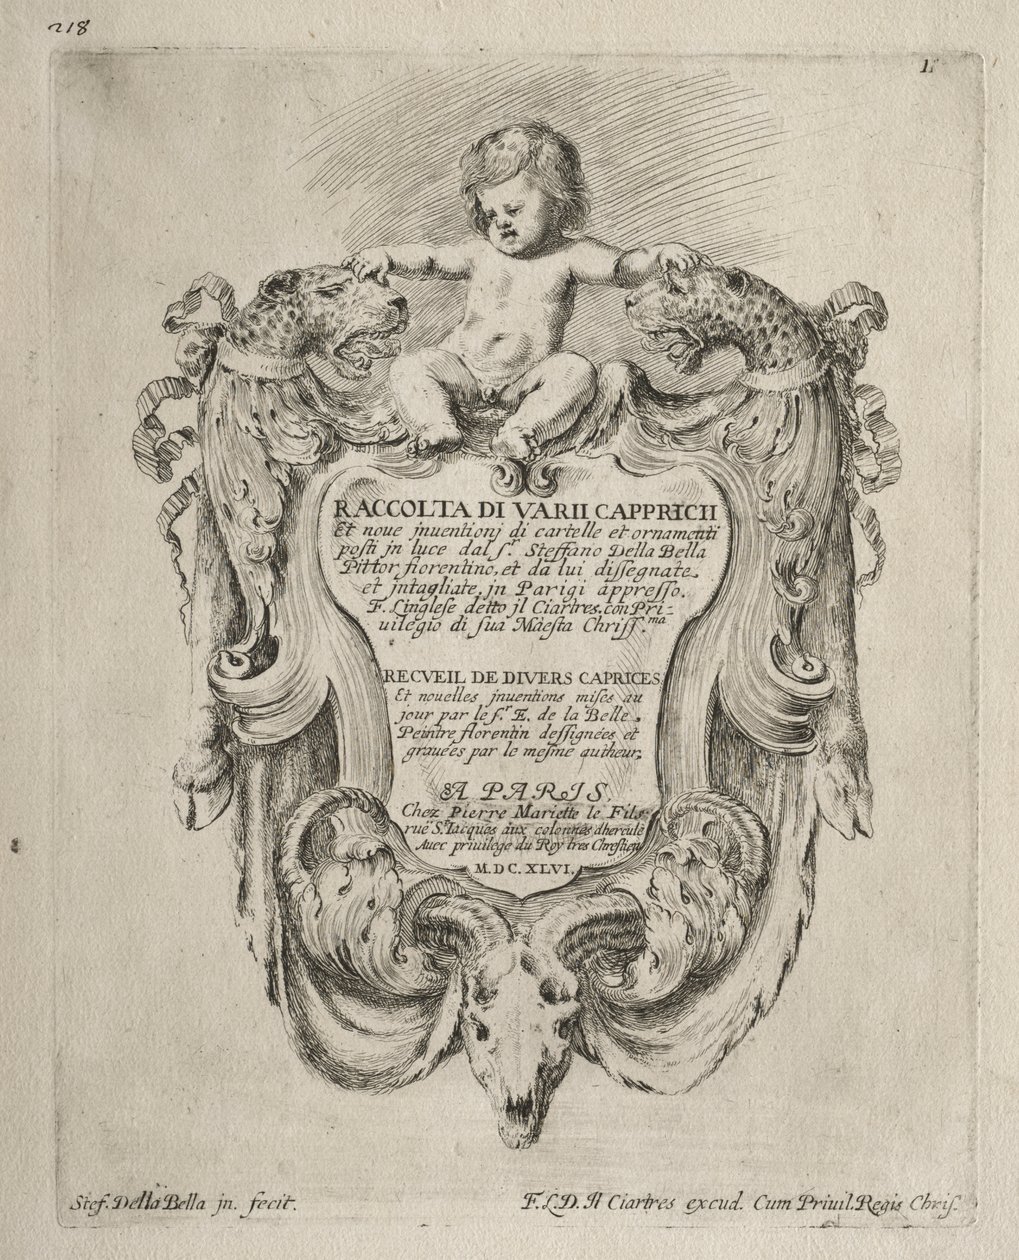 218
1
RACCOLTA DI VARII CAPPRICII
Et noue jnuentionj di cartelle et ornamenti
posti jn luce dal s.r Steffano Della Bella
Pittor fiorentino, et da lui dissegnate
et jntagliate, jn Parigi appresso.
F. L'inglese detto jl Ciartres. con Pri-
uilegio di sua Maesta Chriss.ma
RECVEIL DE DIVERS CAPRICES
Et nouelles jnuentions mises au
jour par le s.r E. de la Belle
Peintre florentin dessignées et
grauées par le mesme autheur,
A PARIS,
Chez Pierre Mariette le Fils
ruë St. Iacques aux colonnes dhercule
Auec priuilege du Roy tres Chrestien
M.DC.XLVI.
Stef. Della Bella jn. fecit.
F.L.D. Il Ciartres excud. Cum Priuil. Regis Chris.